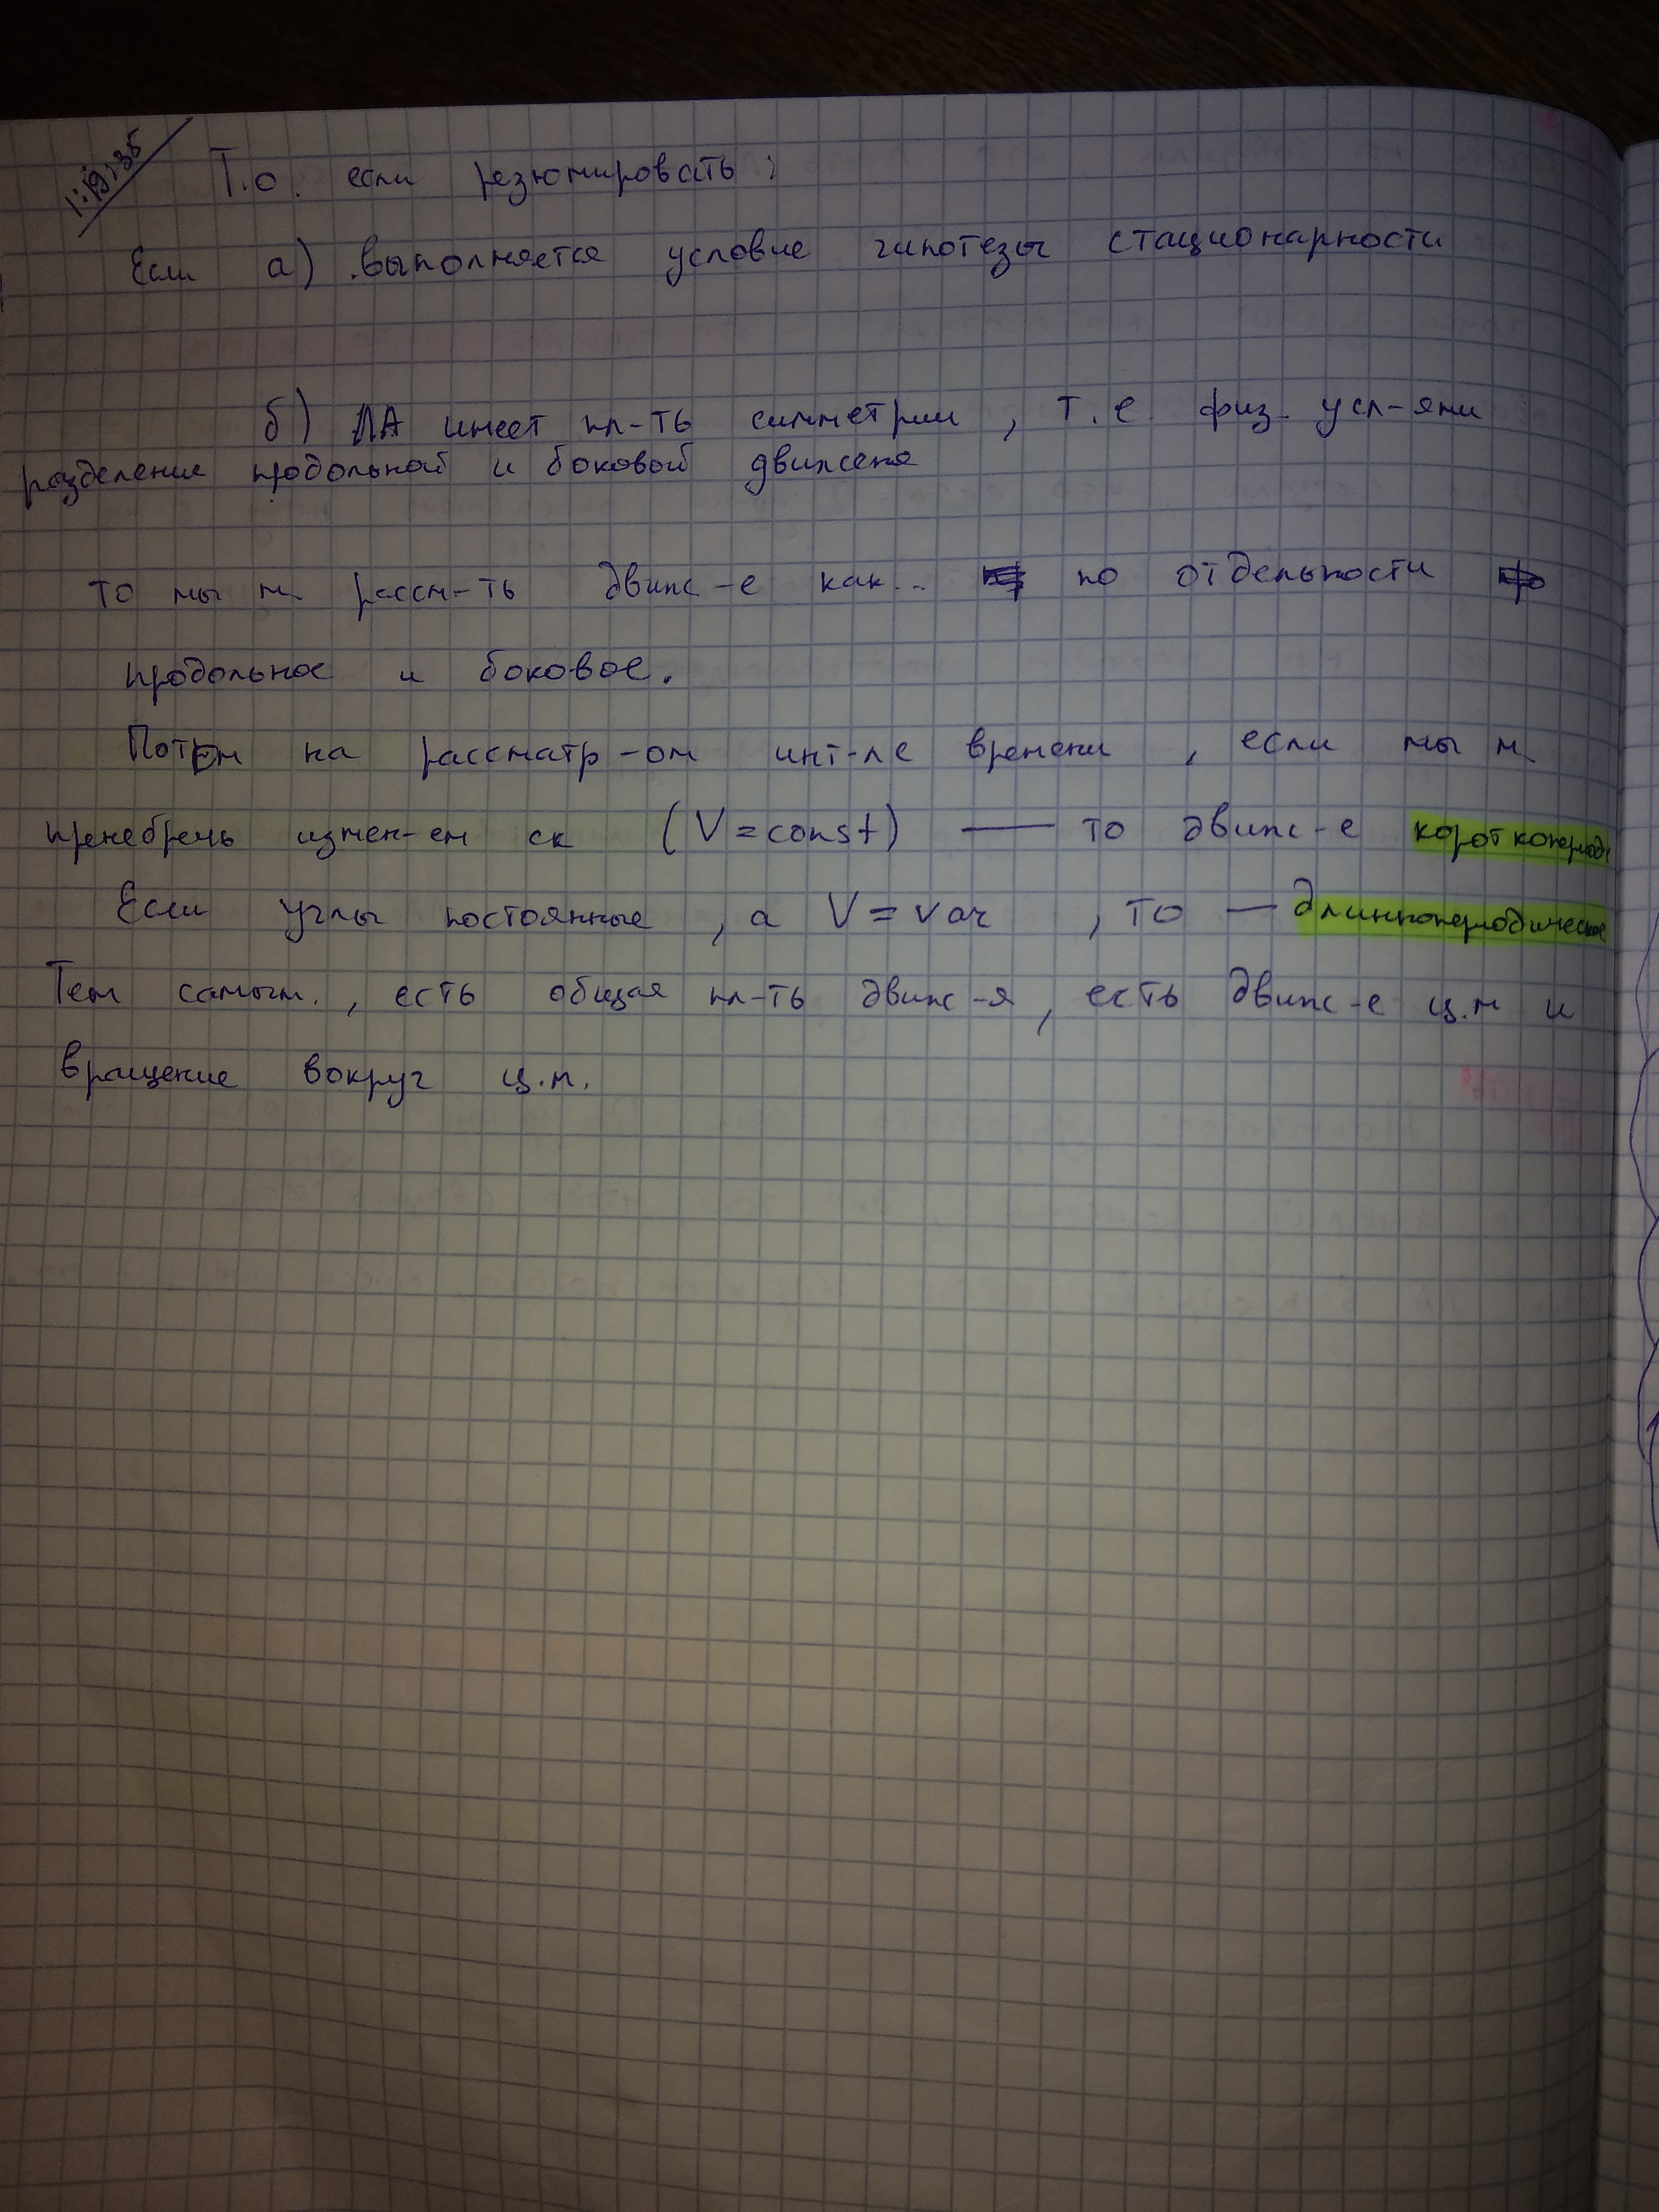 1:19:35
Т.о. если резюмировать:
Если а) выполняется условие гипотезы стационарности
б) ЛА имеет пл-ть симметрии, т.е. физ. усл-ями
разделения продольной и боковой движения
то мы м. рассм-ть движ-е как.. по отдельности
продольное и боковое.
Потом на рассматр-ом инт-ле времени, если мы м.
пренебречь измен-ем ск (V = const) — то движ-е короткопериод
Если углы постоянные, а V = var, то — длиннопериодическое
Тем самым., есть общая пл-ть движ-я, есть движ-е ц.м и
вращение вокруг ц.м.